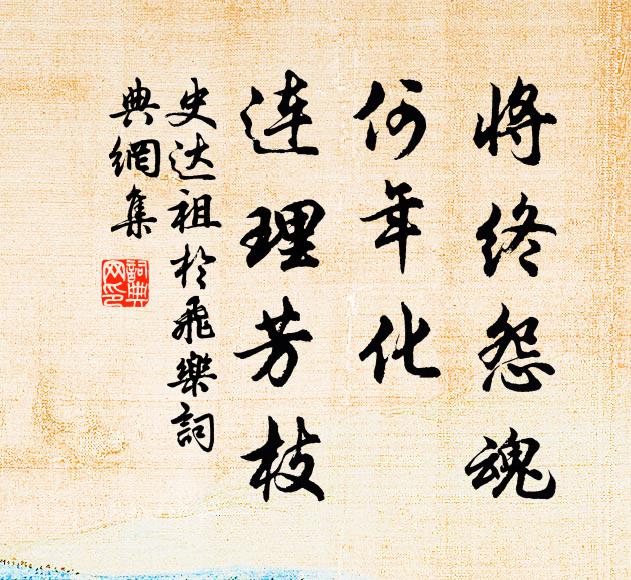 将终怨魂
何年化
连理芳枝
史达祖於飛樂詞
典網集
詞典網印